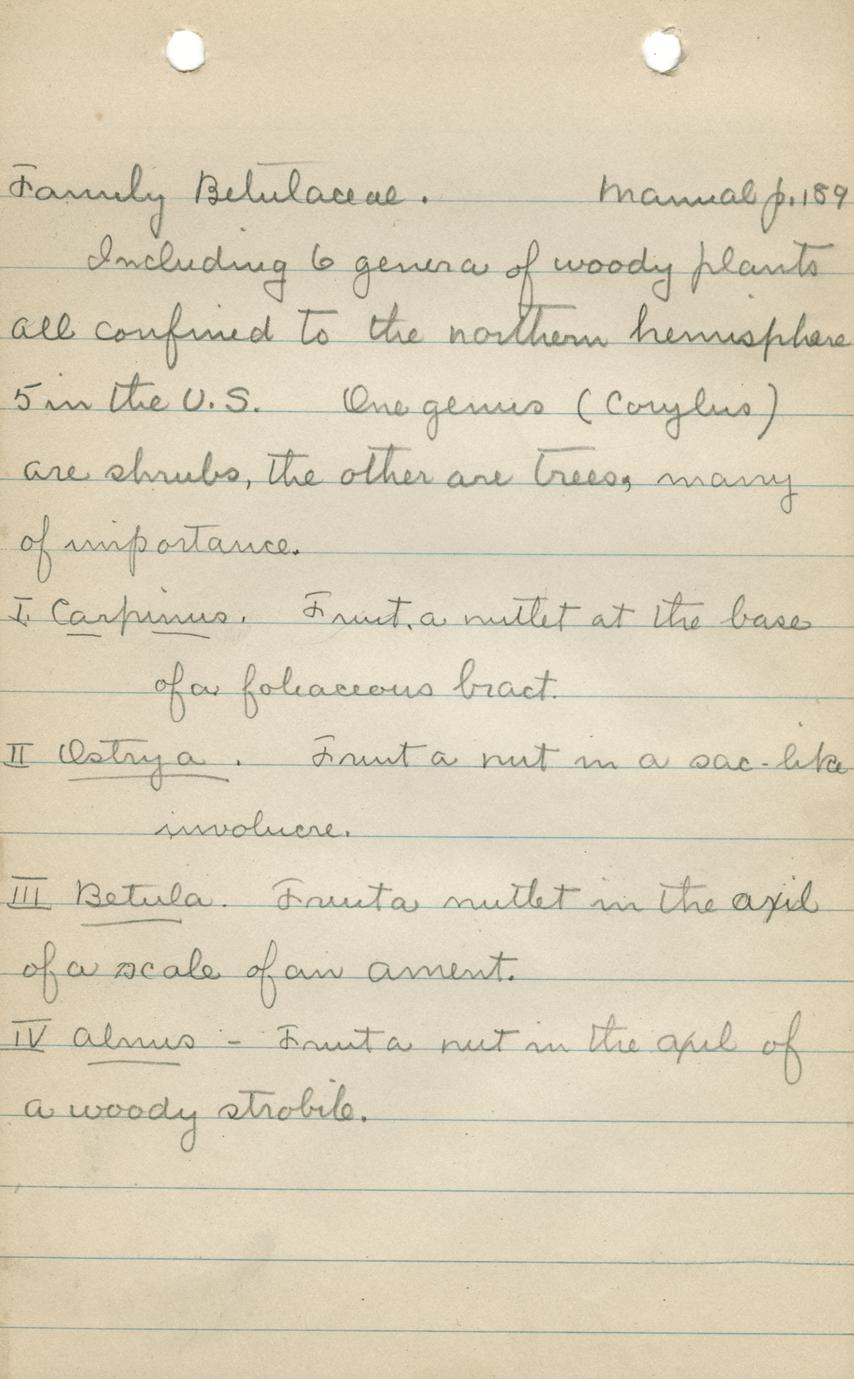 Family Betulaceae. Manual p. 189
Including 6 genera of woody plants
all confined to the northern hemisphere
5 in the U.S. One genus (Corylus)
are shrubs, the other are trees, many
of importance.
I. Carpinus. Fruit, a nutlet at the base
of a foliaceous bract.
II Ostrya. Fruit a nut in a sac-like
involucre.
III Betula. Fruit a nutlet in the axil
of a scale of an ament.
IV Alnus - Fruit a nut in the axil of
a woody strobile.